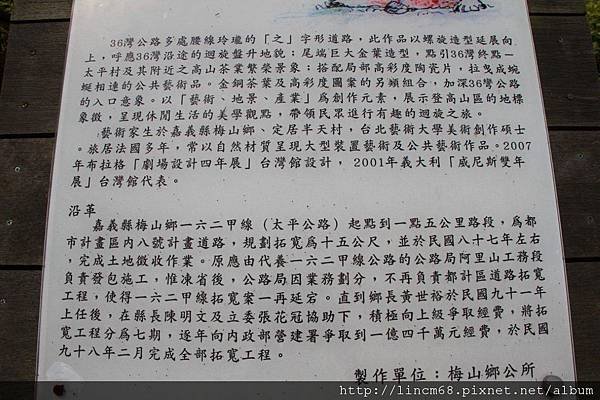 36灣公路多處腰線玲瓏的「之」字形道路，此作品以螺旋造型延展向
上，呼應36灣沿途的迴旋盤升地貌；尾端巨大金葉造型，點引36灣終點－
太平村及其附近之高山茶業繁榮景象；搭配局部高彩度陶瓷片，拉曳成蜿
蜒相連的公共藝術品。金銅茶葉及高彩度圖案的另類組合，加深36彎公路
的入口意象。以「藝術、地景、產業」為創作元素，展示登高山區的地標
象徵，呈現休閒生活的美學觀點，帶領民眾進行有趣的迴旋之旅。
藝術家生於嘉義縣梅山鄉、定居半天村，台北藝術大學美術創作碩士
。旅居法國多年，常以自然材質呈現大型裝置藝術及公共藝術作品。2007
年布拉格「劇場設計四年展」台灣館設計，2001年義大利「威尼斯雙年
展」台灣館代表。
沿革
嘉義縣梅山鄉一六二甲線（太平公路）起點到一點五公里路段，為都
市計畫區內八號計畫道路，規劃拓寬為十五公尺，並於民國八十七年左右
，完成土地徵收作業。原應由代養一六二甲線公路的公路局阿里山工務段
負責發包施工，惟凍省後，公路局因業務劃分，不再負責都計區道路拓寬
工程，使得一六二甲線拓寬案一再延宕。直到鄉長黃世裕於民國九十一年
上任後，在縣長陳明文及立委張花冠協助下，積極向上級爭取經費，將拓
寬工程分為七期，逐年向內政部營建署爭取到一億四千萬元經費，於民國
九十八年二月完成全部拓寬工程。
製作單位：梅山鄉公所
http://lincm68.pixnet.net/album